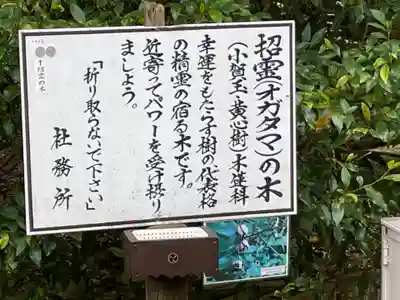 招霊(オガタマ)の木
(小賀玉、黄心樹)木蓮科
幸運をもたらす樹の代表格
の招霊の宿る木です。
近寄ってパワーを受け摂り
ましょう。
「折り取らないで下さい」
社務所